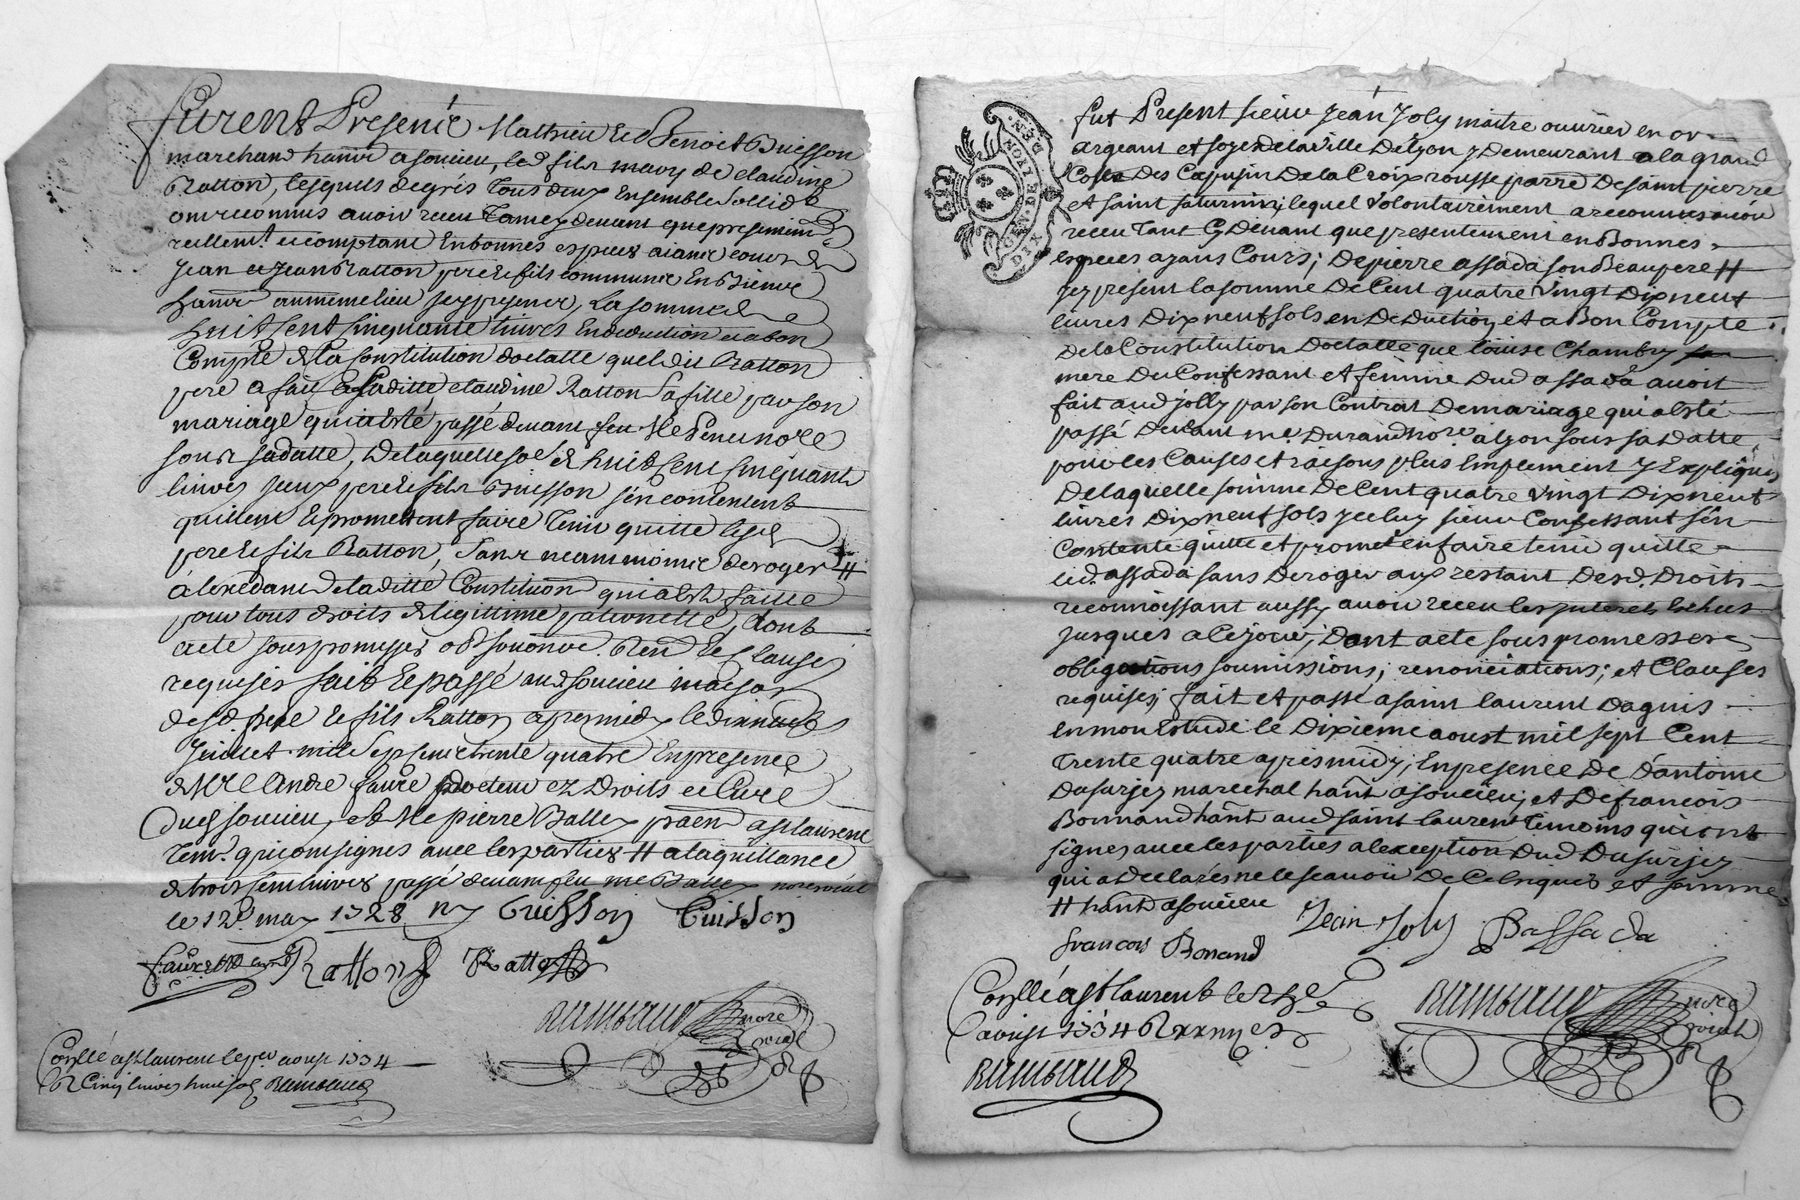 furent Presents Mathieu et Benoit Buisson
marchand hant a soucieu, led. fils mary de claudine
Ratton, lesquels de grés tous deux Ensemble sollid.
ont reconnus avoir receu tant cy devant que presentem.
reellemt. et comptant En bonnes especes aiant cours de
Jean et Jean Ratton pere et fils communs En Biens
hants au meme lieu icy presents, La somme de
huit Cent Cinquante livres En deduction et a bon
Compte de la Constitution dotalle que led. Ratton
pere a fait a laditte claudine Ratton sa fille par son
mariage qui a esté passé devant feu Me nore
sous sa datte, De laquelle so. de huit Cent Cinquante
livres yceux pere et fils Buisson s'en contentent
quittent et promettent faire tenir quitte lesd.
pere et fils Ratton, sans neammoins deroger #
à l'exedant de laditte Constitution qui a esté faitte
pour tous droits de legittime paternelle, dont
acte sous promesses ob. soumon. Ren. et Clauses
requises fait et passé aud. soucieu maison
desd. pere et fils Ratton apres midy le dixneuf
Juillet mil sept cent trente quatre En presence
de Mre André faure Docteur ez Droits et Curé
dud. soucieu, et de Me pierre Balley pacn. a st laurent
tem. qui ont signes avec les parties # a la quittance
de trois Cent livres passé devant feu me Balley nore royal
le 12e. may 1728 Buisson Buisson
faure Ratton Ratton
Rambaud nore royal
Conllé a st laurent le per aoust 1734
R. Cinq livres huit sol Rambaud
DIX DEN. DE LYON
fut Present sieur Jean Joly maitre ouvrier en or
argeant et soye de la Ville De Lyon y Demeurant a la grand
Coste Des Capusin De la Croix rousse parre De saint pierre
et saint saturnin, lequel volontairement a reconnus avoir
receu tant Cy Devant que presentement en Bonnes
especes ayans Cours; De pierre assada son Beaupere #
icy present la somme De Cent quatre vingt Dix neuf
livres Dix neuf sols en Deduction et a Bon Compte
De la Constitution Dotalle que loüise Chambry
mere Du Confessant et femme Dud assada avoit
fait aud Jolly par son Contrat De mariage qui a esté
passé Devant me. Durand nore. a lyon sous sa Datte,
pour les Causes et raisons plus Emplement y Expliqués
De laquelle somme De Cent quatre vingt Dix neuf
livres Dix neuf sols Yceluy sieur Confessant s'en
Contente quitte et promet en faire tenir quitte
led. assada sans Deroger aux restant Desd. Droits
reconnoissant aussy avoir receu les interets Echus
jusques a Ce jour; Dont acte sous promesses
obligations soumissions; renonciations; et Clauses
requises, fait et passé a saint laurent Dagnis
en mon Estude le Dixieme aoust mil sept Cent
Trente quatre apres midy, En presence De d'antoine
Dasurjey marechal hant a soucieu, et De francois
Bonnand hant aud saint laurent temoins qui ont
signes avec les parties a l'exception Dud Dasurjey
qui a Declarés ne le scavoir De Ce Enquis et somme
# hant a soucieu Jean Joly P assada
francois Bonand
Conllé a st laurent le
aoust 1734 R
Rambaud
Rambaud nore royal